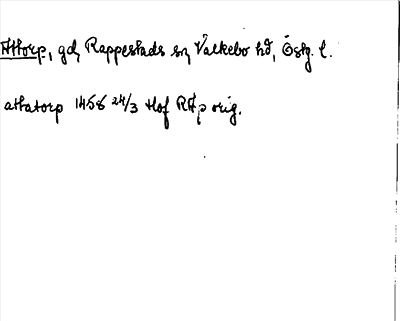 Attorp, gd, Rappestads sn, Valkebo hd, Östg. l.
athatorp 1458 24/3 Hof RAp orig.